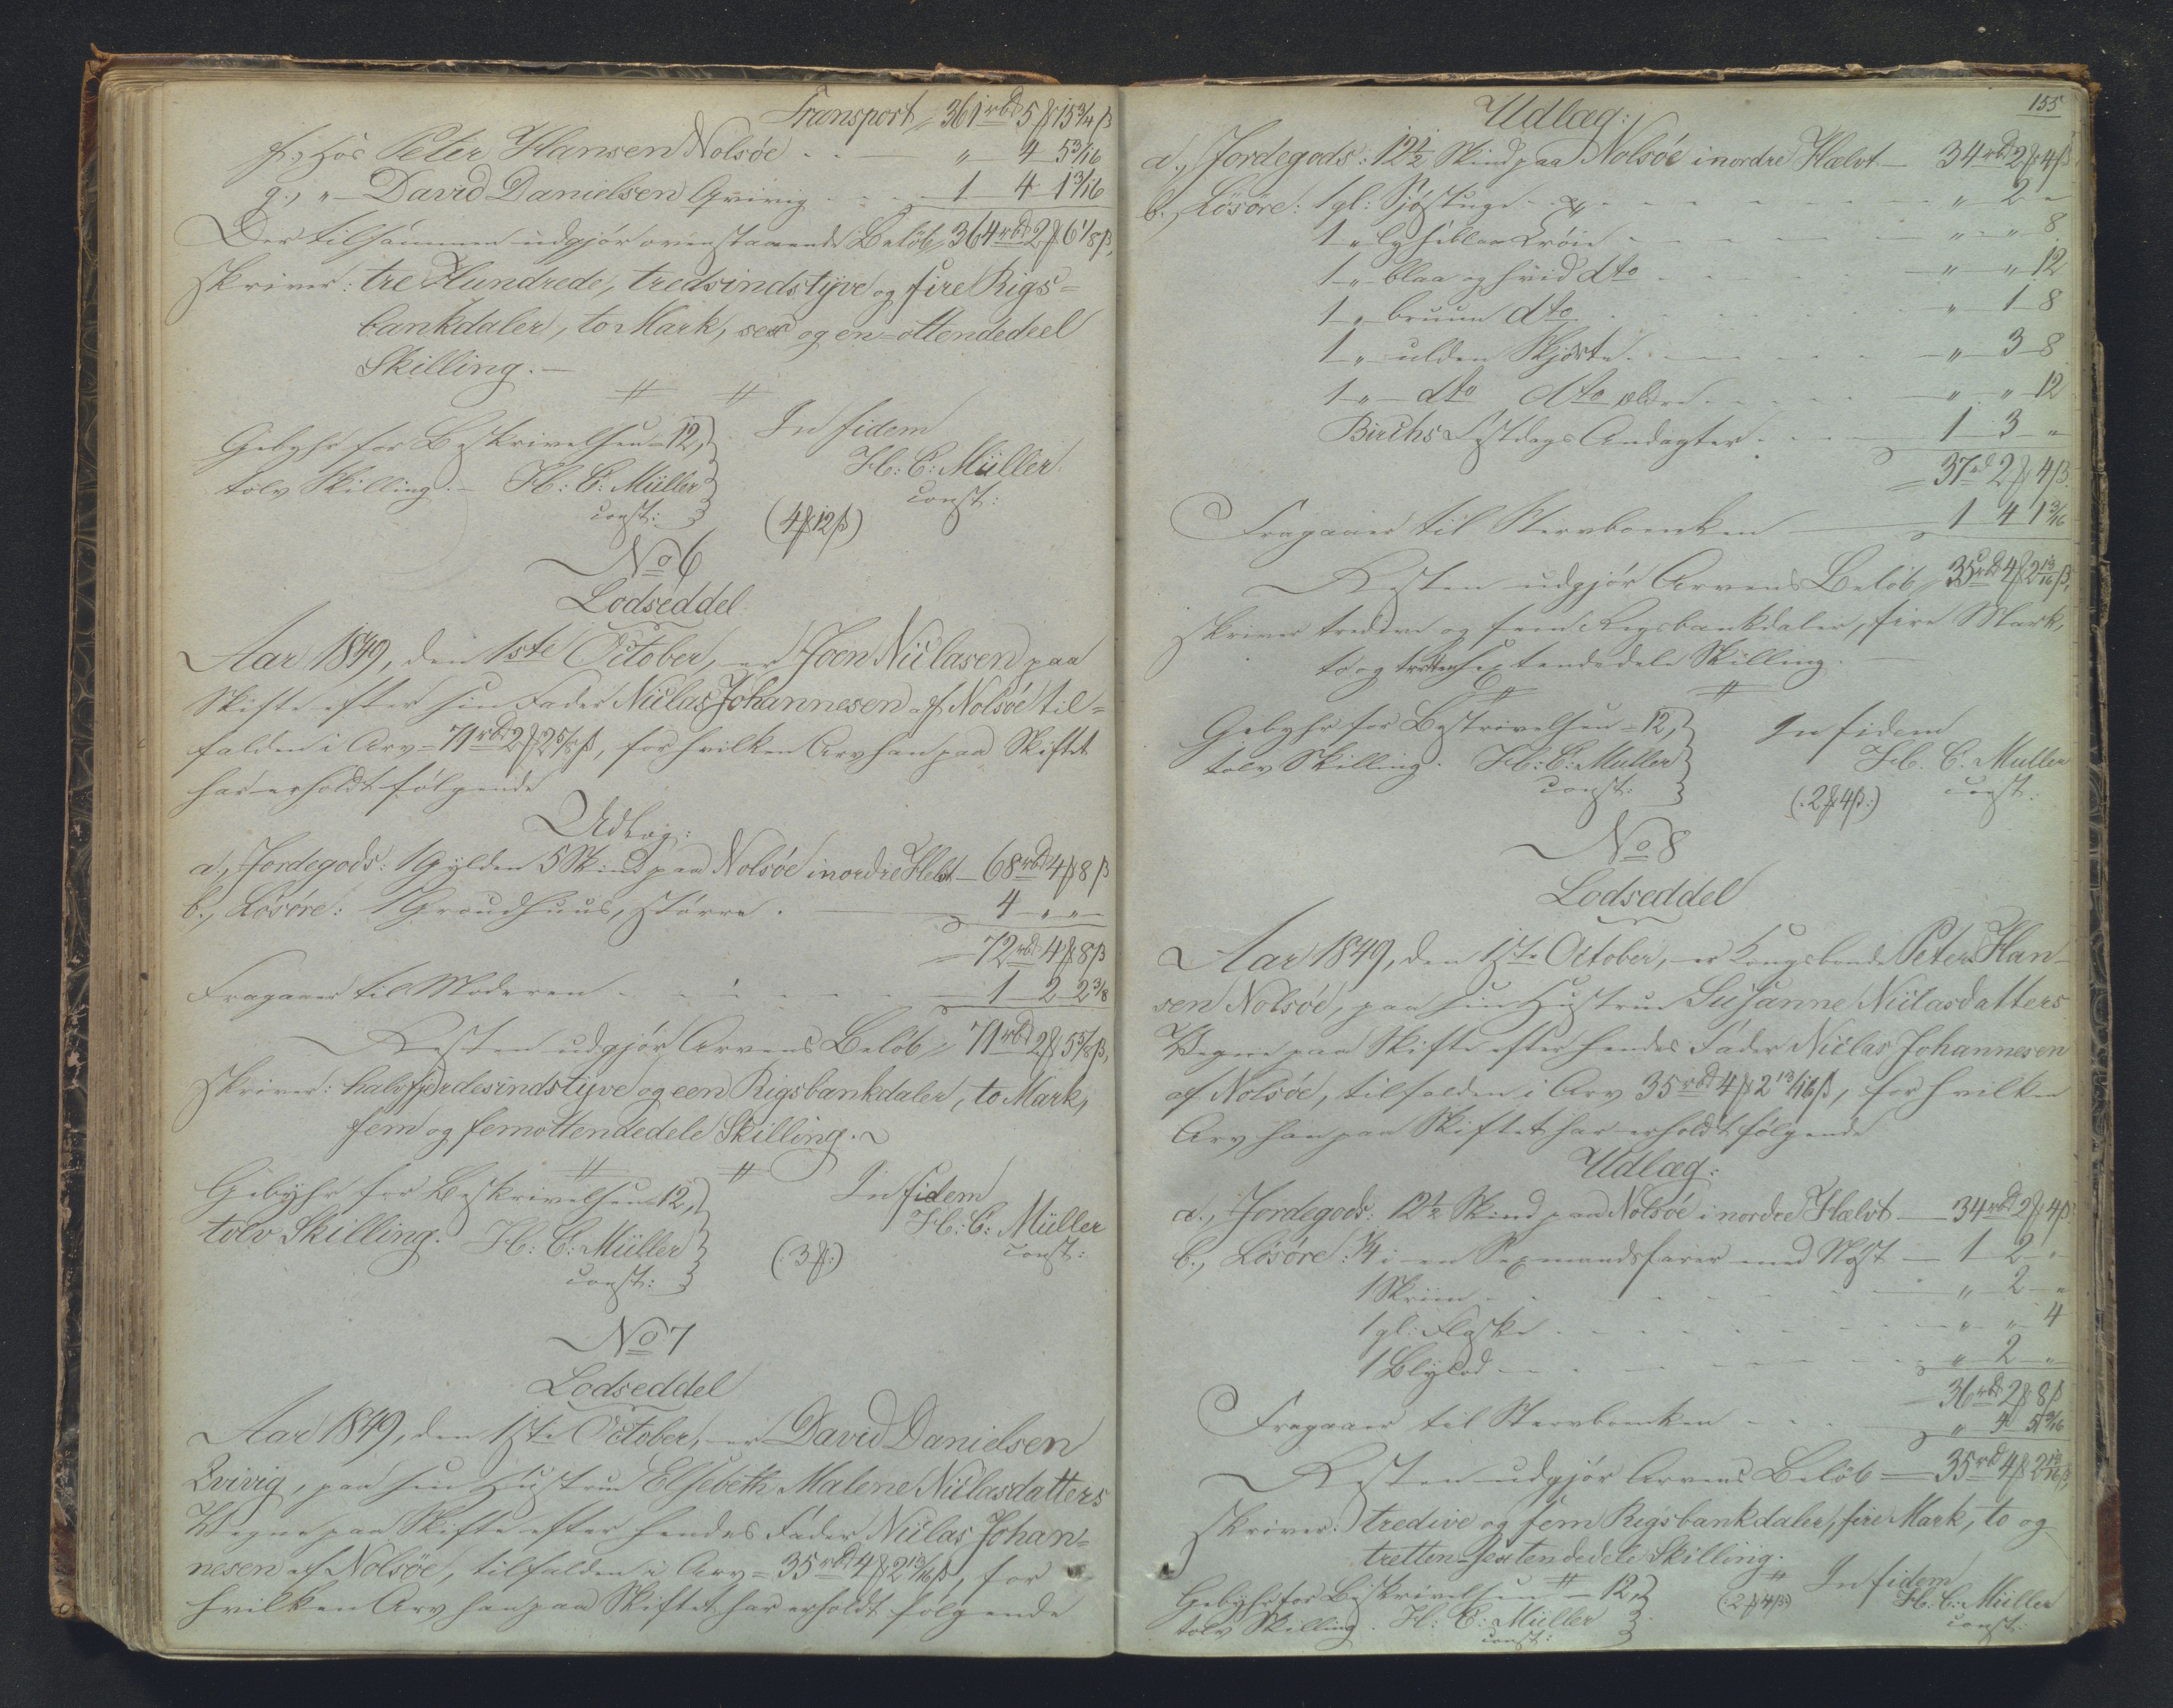 Transport 361 rbd 5 ₰ 15 3/4 β
f., hos Peter Hansen Nolsöe . . — „ 4 5 3/16
g., „ — David Danielsen Qvivig . . . 1 4 1 3/16
Der tilsammen udgjör ovenstaaende Belöb, 364 rbd 2 ₰ 6 1/8 β,
skriver: tre Hundrede, tredsindstyve og fire Rigs=
bankdaler, to Mark, sex og en=ottendedeel
Skilling. —
Gebyhr for Beskrivelsen = 12,
tolv Skilling. — H: C: Müller
const:
In fidem
H: C: Müller
const:
(4 ₰ 12 β)
No 6
Lodseddel
Aar 1849, den 1ste October, er Joen Niclasen paa
Skifte efter sin Fader Niclas Johannesen af Nolsöe til=
falden i Arv = 71 rbd 2 ₰ 2 5/8 β, for hvilken Arv han paa Skiftet
har erholdt fölgende
Udlæg:
a., Jordegods: 1 Gylden 5 Skind paa Nolsöe i nordre Helvt — 68 rbd 4 ₰ 8 β
b., Lösöre: 1 Groudhuus, större . — 4 „ „
72 rbd 4 ₰ 8 β
Fragaaer til Moderen . . . . 1 2 2 3/8
Resten udgjör Arvens Belöb, 71 rbd 2 ₰ 5 5/8 β,
skriver: halvfjerdesindstyve og een Rigsbankdaler, to Mark,
fem og femottendedele Skilling.
Gebyhr for Beskrivelsen 12,
tolv Skilling. H: C: Müller
const:
In fidem
H: C: Müller
const:
(: 3 ₰ :)
No 7
Lodseddel
Aar 1849, den 1ste October, er David Danielsen
Qvivig, paa sin Hustrue Elsebeth Malene Niclasdatters
Vegne paa Skifte efter hendes Fader Niclas Johan=
nesen af Nolsöe, tilfalden i Arv = 35 rbd 4 ₰ 2 13/16 β, for
hvilken Arv han paa Skiftet har erholdt fölgende
155
Udlæg:
a., Jordegods: 12 1/2 Skind paa Nolsöe i nordre Hælvt — 34 rbd 2 ₰ 4 β
b., Lösöre: 1 gl: Sjöstuge . . . „ 2 „
1 „ lyseblaa Tröie . . . „ „ 8
1 „ blaa og hvid dto . . . „ „ 12
1 „ bruun dto . . . „ 1 8
1 „ ulden Skjorte . . . „ 3 8
1 „ dto dto ældre . . . „ „ 12
Birchs Festdags Andagter . . . 1 3 „
37 rd 2 ₰ 4 β.
Fragaaer til Stervboenken — 1 4 1 3/16
Resten udgjör Arvens Belöb, 35 rbd 4 ₰ 2 13/16 β,
skriver tredive og fem Rigsbankdaler, fire Mark,
to og trettensextendedele Skilling.
Gebyhr for Beskrivelsen = 12,
tolv Skilling. H: C: Müller
const:
In fidem
H. C. Muller
const.
(: 2 ₰ 4 β :)
No 8
Lodseddel
Aar 1849, den 1ste October, er Kongsbonde Peter Han=
sen Nolsöe, paa sin Hustrue Susanne Niclasdatters
Vegne paa Skifte efter hendes Fader Niclas Johannesen
af Nolsöe, tilfalden i Arv 35 rbd 4 ₰ 2 13/16 β, for hvilken
Arv han paa Skiftet har erholdt fölgende
Udlæg:
a., Jordegods: 12 1/2 Skind paa Nolsöe i nordre Hælvt — 34 rbd 2 ₰ 4 β
b., Lösöre: 1/4 i en Sexmandsfarer med Nöst — 1 2 „
1 Skriin . . . „ 2 „
1 gl: Flaske . . . „ „ 4
1 Blylod . . . „ 2 „
36 rbd 2 ₰ 8 β
Fragaaer til Stervboenken . . . „ 4 5 3/16
Resten udgjör Arvens Belöb = 35 rbd 4 ₰ 2 13/16 β,
skriver: tredive og fem Rigsbankdaler, fire Mark, to og
tretten=sextendedele Skilling.
Gebyhr for Beskrivelsen — 12,
tolv Skilling. H: C: Müller
const:
(: 2 ₰ 4 β :)
In fidem
H: C: Müller
const: